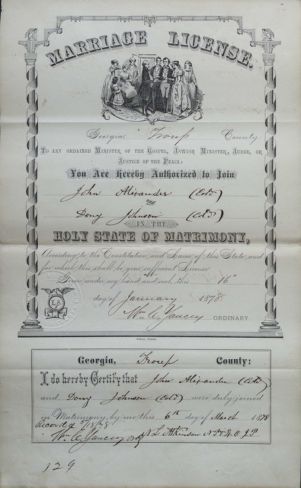 MARRIAGE LICENSE.
Georgia, Troup County
TO ANY ORDAINED MINISTER OF THE GOSPEL, JEWISH MINISTER, JUDGE, OR
JUSTICE OF THE PEACE:
You Are Hereby Authorized to Join
John Alixander (Cold)
and
Dony Johnson (Cold)
IN THE
HOLY STATE OF MATRIMONY,
According to the Constitution and Laws of this State, and
for which this shall be your sufficient License
Given under my hand and seal, this 16
day of January 1878
Wm C Yancey ORDINARY.
Georgia, Troup County:
I do hereby Certify that John Alixander (Cold)
and Dony Johnson (Cold) were duly joined
in Matrimony by me this 6th day of March 1878
Wm C Yancey L. Atkinson J.P.
129